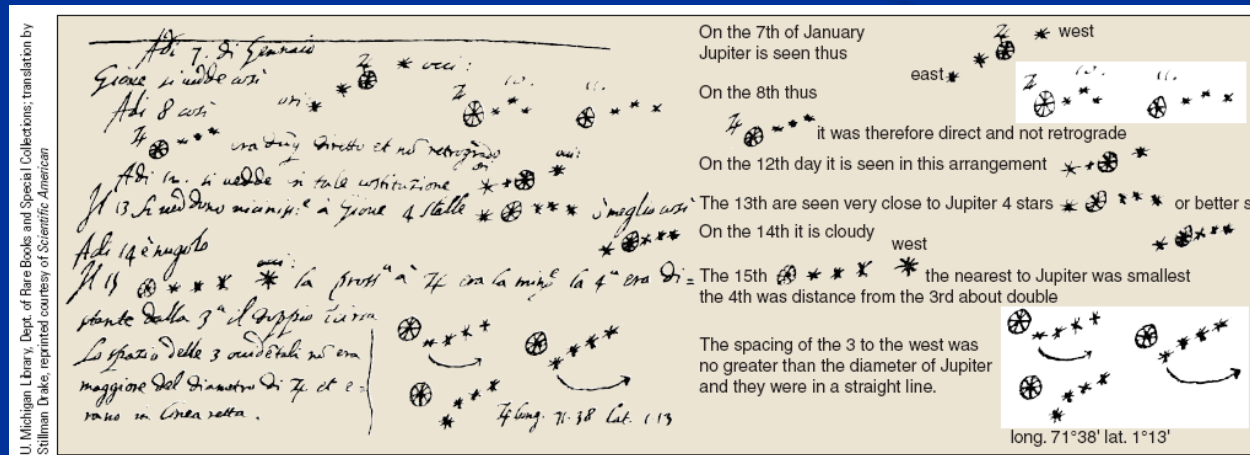 U. Michigan Library, Dept. of Rare Books and Special Collections; translation by
Stillman Drake, reprinted courtesy of Scientific American
Adi 7. di Gennaio
Gione si vedde così
occ:
ori:
Adi 8 così
10.
11.
era dunq diretto et nō retrogrado
Adi 12. si vedde in tale costituzione
Il 13 si veddono vicinissᵉ à Gione 4 stelle
ò meglio così
Adi 14 è nugolo
Il 15
occi:
la prossᵃ à ♃ era la minᵉ la 4ᵃ era di=
stante dalla 3ᵃ il doppio
Lo spazio delle 3 occidētali nō era
maggiore del diametro di ♃ et e=
rano in linea retta.
♃ long. 71.38 Lat. 1.13
On the 7th of January
Jupiter is seen thus
west
east
On the 8th thus
10.
11.
it was therefore direct and not retrograde
On the 12th day it is seen in this arrangement
The 13th are seen very close to Jupiter 4 stars
or better s
On the 14th it is cloudy
west
The 15th
the nearest to Jupiter was smallest
the 4th was distance from the 3rd about double
The spacing of the 3 to the west was
no greater than the diameter of Jupiter
and they were in a straight line.
long. 71°38' lat. 1°13'